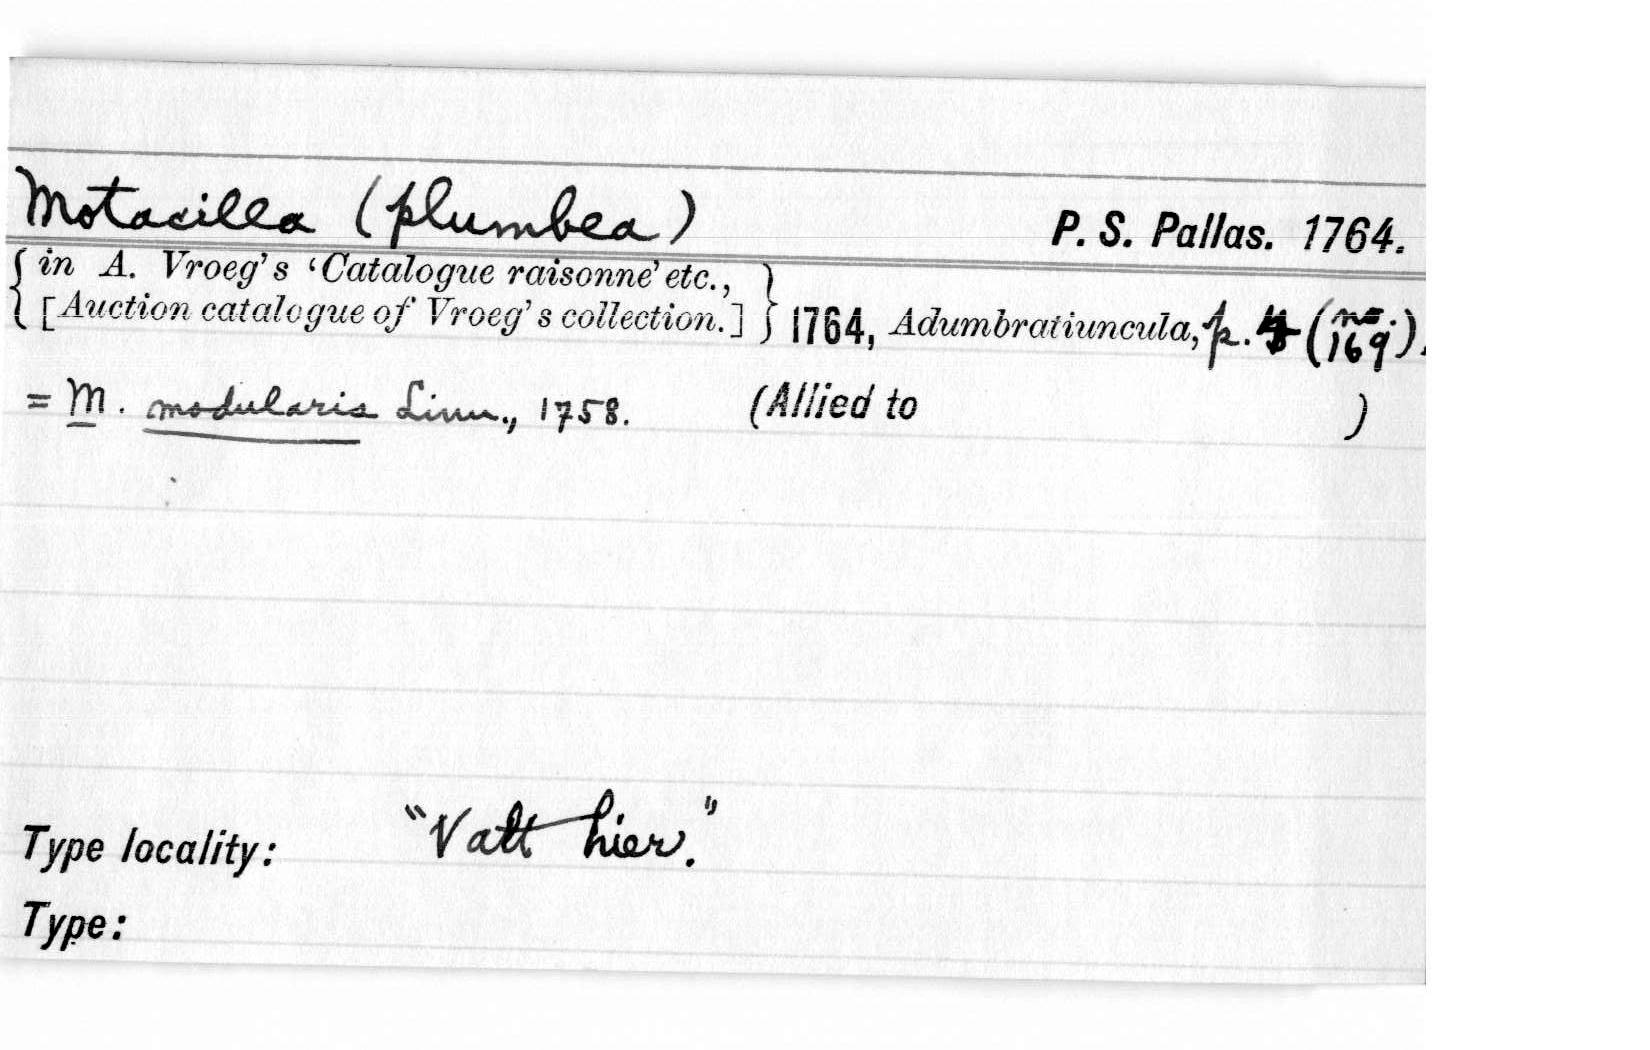 Motacilla (plumbea) P. S. Pallas. 1764.
{ in A. Vroeg's ‘Catalogue raisonne’ etc., }
{ [Auction catalogue of Vroeg's collection.] } 1764, Adumbratiuncula, p. (no. 169).
= M. modularis Linn., 1758. (Allied to )
Type locality: "Valt hier."
Type: